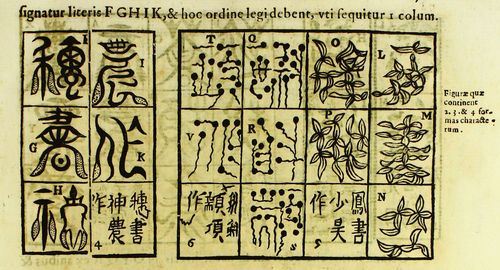 signatur literis F GHIK, & hoc ordine legi debent, vti sequitur 1 colum.
I
T
Q
O
L
G
K
V
R
P
M
H
N
S
穗書
神農
作
4
顓頊
作
6
鳳書
少昊
作
5
Figuræ quæ
continent
2. 3. & 4 for-
mas characte-
rum.